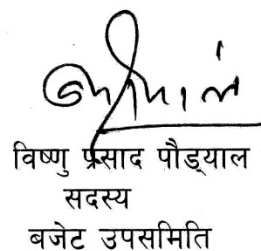 विष्णु प्रसाद पौड्याल
सदस्य
बजेट उपसमिति